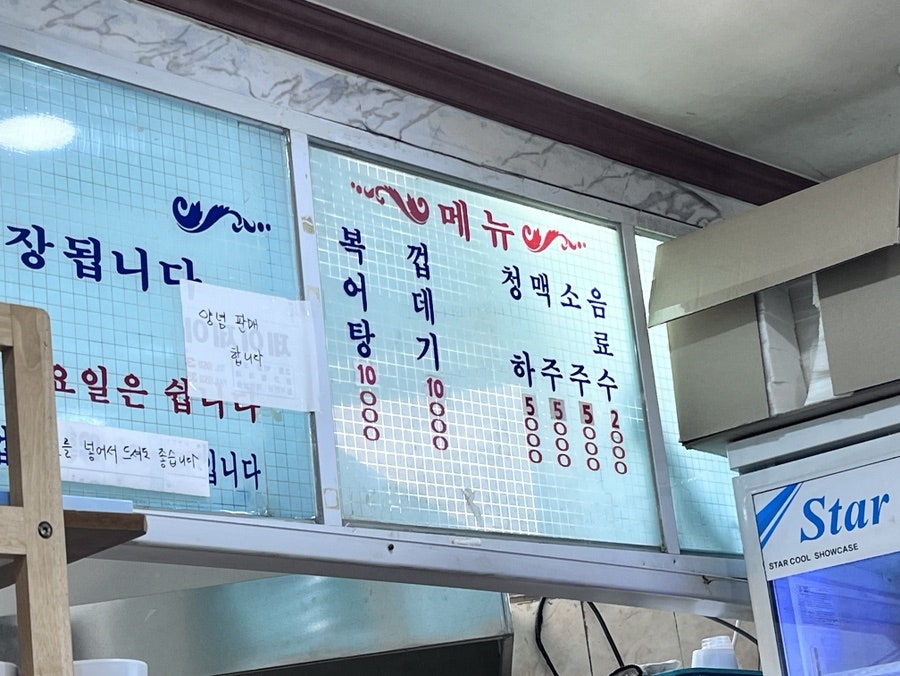 장됩니다
양념 판매
합니다
요일은 쉽니다
를 넣어서 드셔도 좋습니다
입니다
메뉴
복어탕 10000
껍데기 10000
청하 5000
맥주 5000
소주 5000
음료수 2000
Star
STAR COOL SHOWCASE